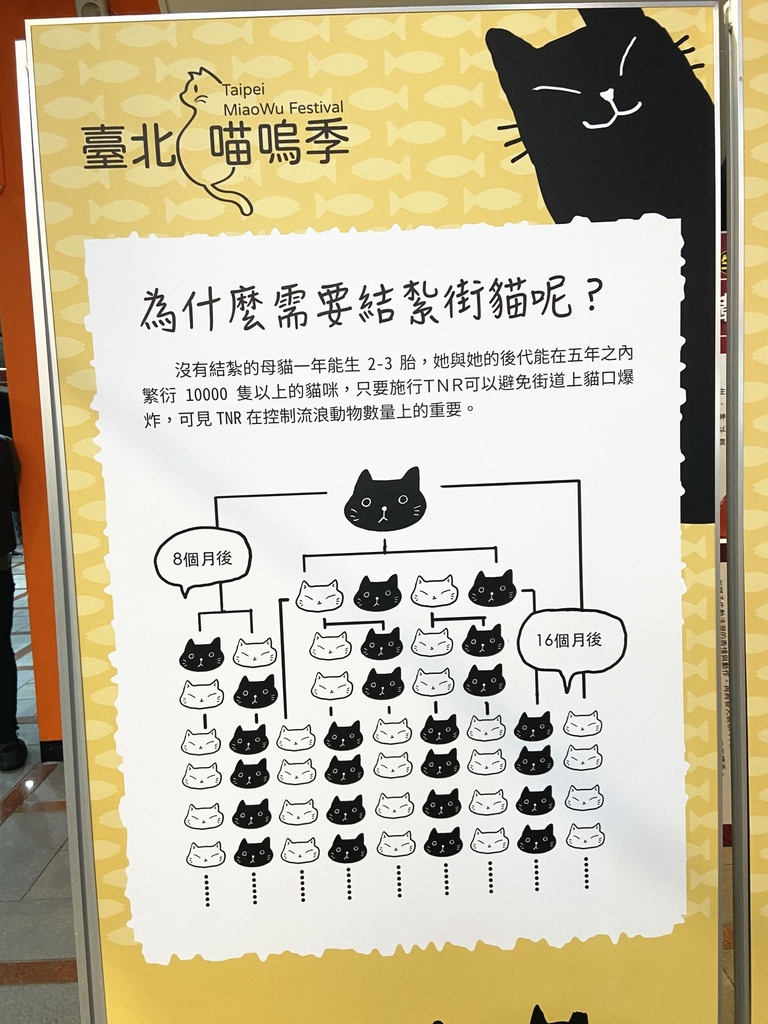 Taipei
MiaoWu Festival
臺北喵嗚季
為什麼需要結紮街貓呢？
沒有結紮的母貓一年能生 2-3 胎，她與她的後代能在五年之內
繁衍 10000 隻以上的貓咪，只要施行TNR可以避免街道上貓口爆
炸，可見 TNR 在控制流浪動物數量上的重要。
8個月後
16個月後